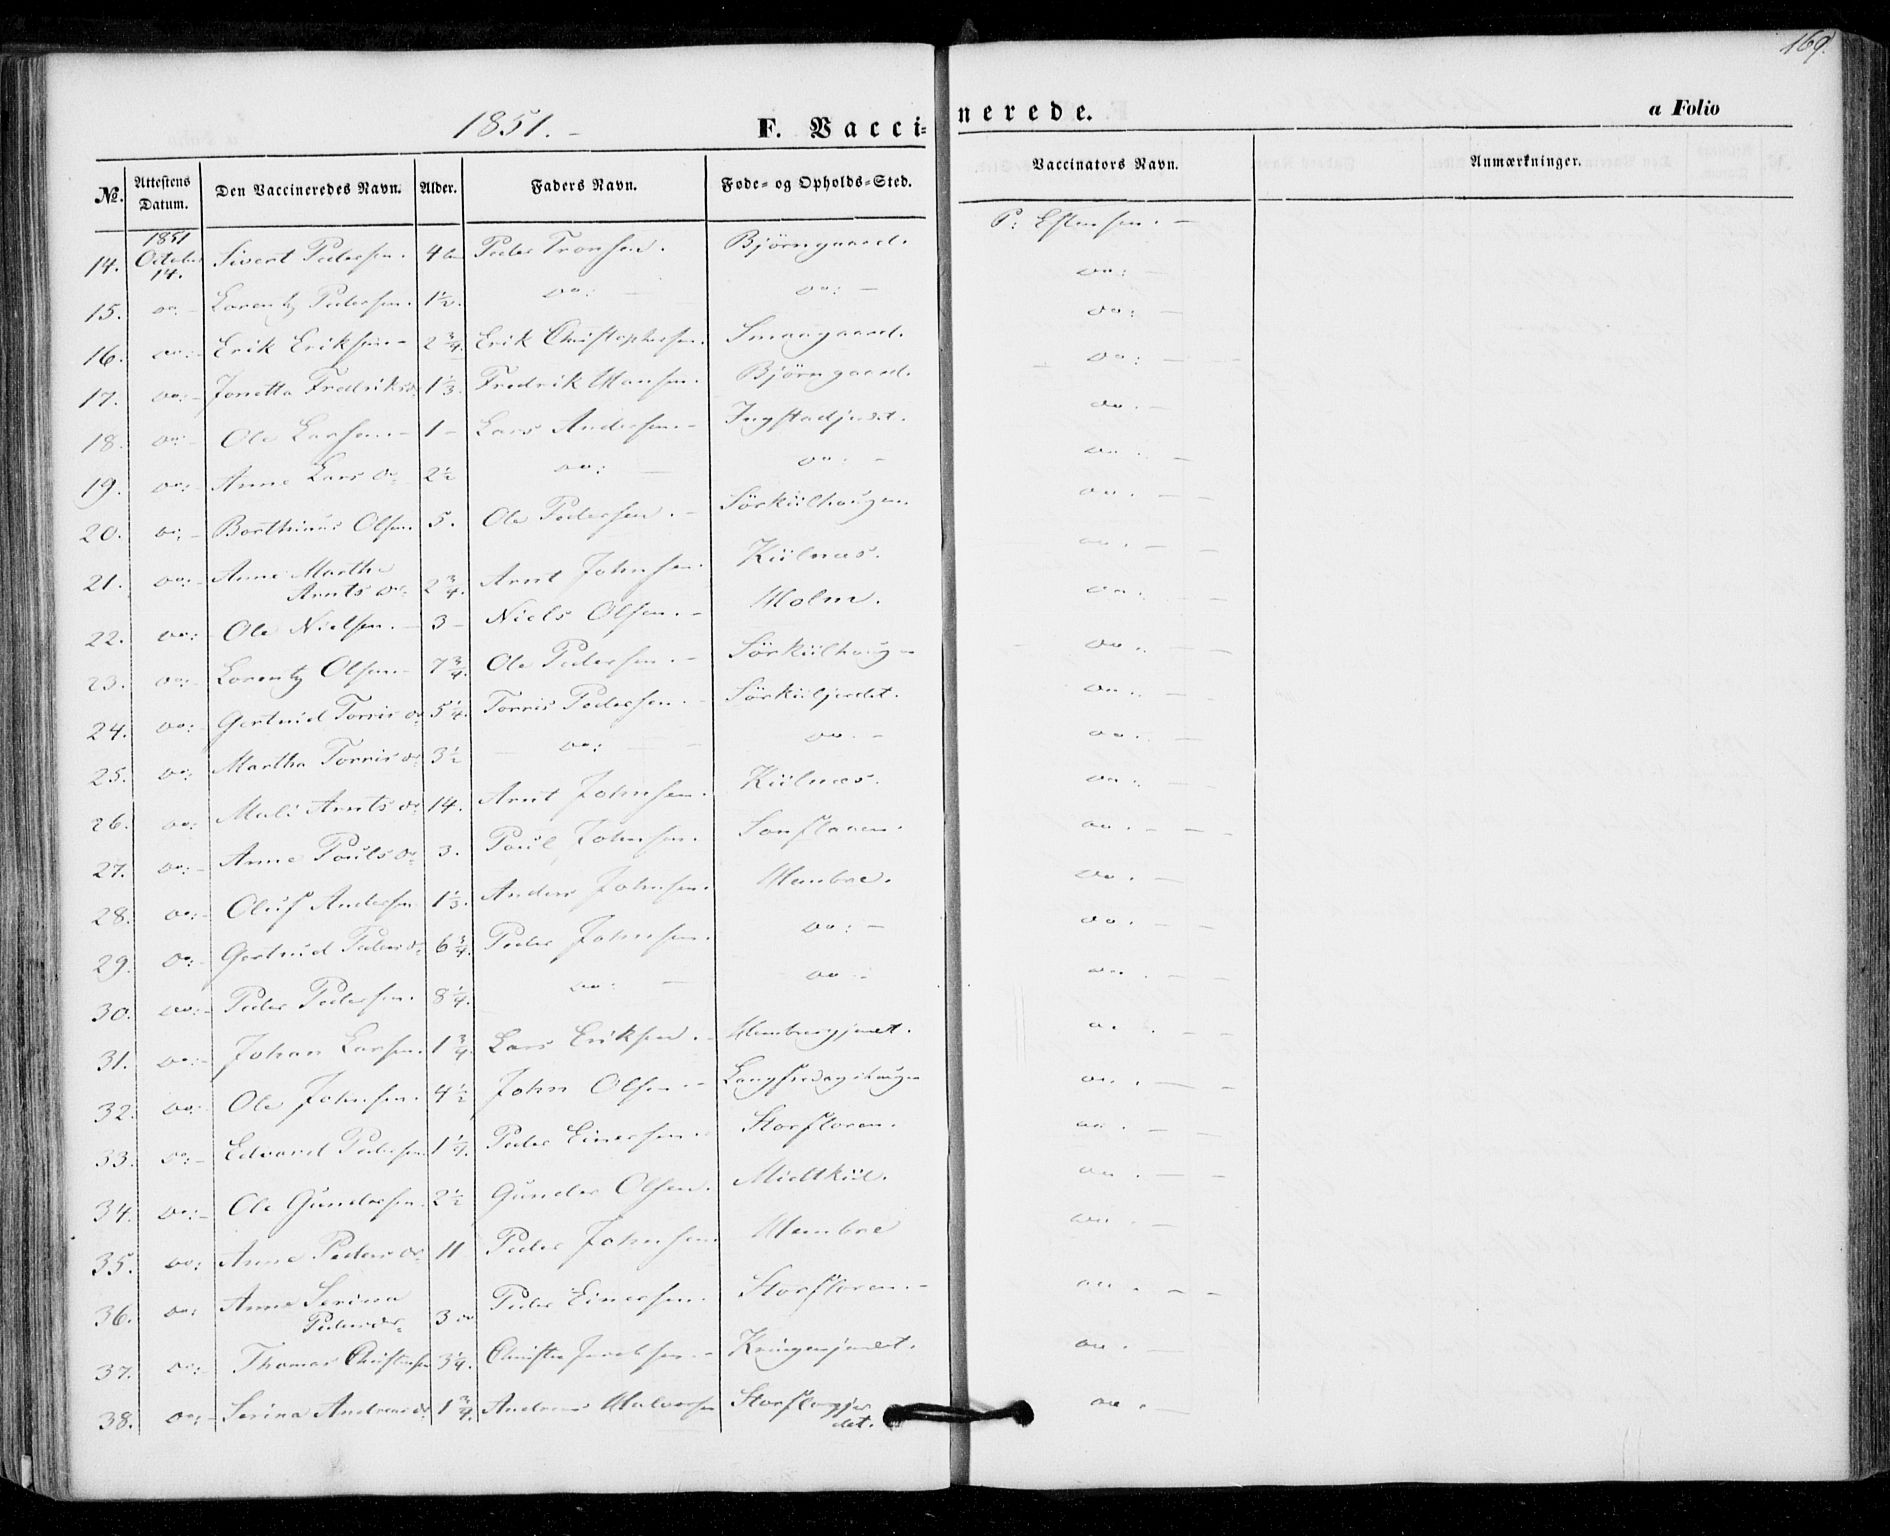 169.
1851. - F. Vaccinerede. a Folio
№. Attestens Datum. Den Vaccineredes Navn. Alder. Faders Navn. Føde- og Opholds-Sted. Vaccinators Navn. Anmærkninger.
14. 1851 October 14. Sivert Pedersen. 4 Peder Tronsen. Bjørngaard. P: Estensen. -
15. do: - Lorentz Pedersen. 1½. do: - do: - do: -
16. do: - Erik Eriksen - 2¾. Erik Christophersen. Smaagaard. do: -
17. do: - Jonetta Fredriksd: 1⅓. Fredrik Hansen. Bjørngaard. do: -
18. do: - Ole Larsen. - 1 - Lars Andersen - Ingstadjerdet. do. -
19. do: - Anne Lars D: 2½ do: - do: - do. -
20. do: - Berthinus Olsen. 5. Ole Pedersen. - Sörkiilhaugen. do. -
21. do: - Anne Martha Arnts D: 2¾. Arnt Johnsen. Kiilnæs. do. -
22. do: - Ole Nielsen. - 3 - Niels Olsen. - Holm. do. -
23. do: - Lorentz Olsen - 7¾. Ole Pedersen. - Sörkiilhaug do. -
24. do: Gertrud Torris D: 5¼. Torris Pedersen. - Sörkiiljerdet. do. -
25. do: Martha Torris D: 3½ do: - do. - do. -
26. do: Mali Arnts D: 14. Arnt Johnsen. Kiilnæs. do. -
27. do: - Anne Pouls D: 3. Poul Johnsen. do. -
28. do: - Oluf Andersen 1⅓. Anders Johnsen. Hembre. do. -
29. do: - Gertrud Peders D: 6¾. Peder Johnsen. do: - do. -
30. do: - Peder Pedersen. 8¼. do: - do - do. -
31. do: - Johan Larsen. 1¾. Lars Eriksen. - Hembregjerdet. do. -
32. do: Ole Johnsen. 4½ John Olsen - Langfredagshaugen do. -
33. do: - Edvard Pedersen 1¼. Peder Einersen. Storfloren. do. -
34. do: - Ole Gundersen. 2½ Gunder Olsen. Midtkiil. do. -
35. do: Anne Peders D: 11 Peder Johnsen Hembre do. -
36. do: Anne Serina Peders D: 3 do Peder Einersen. Storfloren. - do. -
37. do: - Thomas Christensen 3¼. Christen Jacobsen - Kringenjerdet. do. -
38. do: - Serina Andreas D: 1¾. Andreas Halvorsen Storflogjerdet. do. -